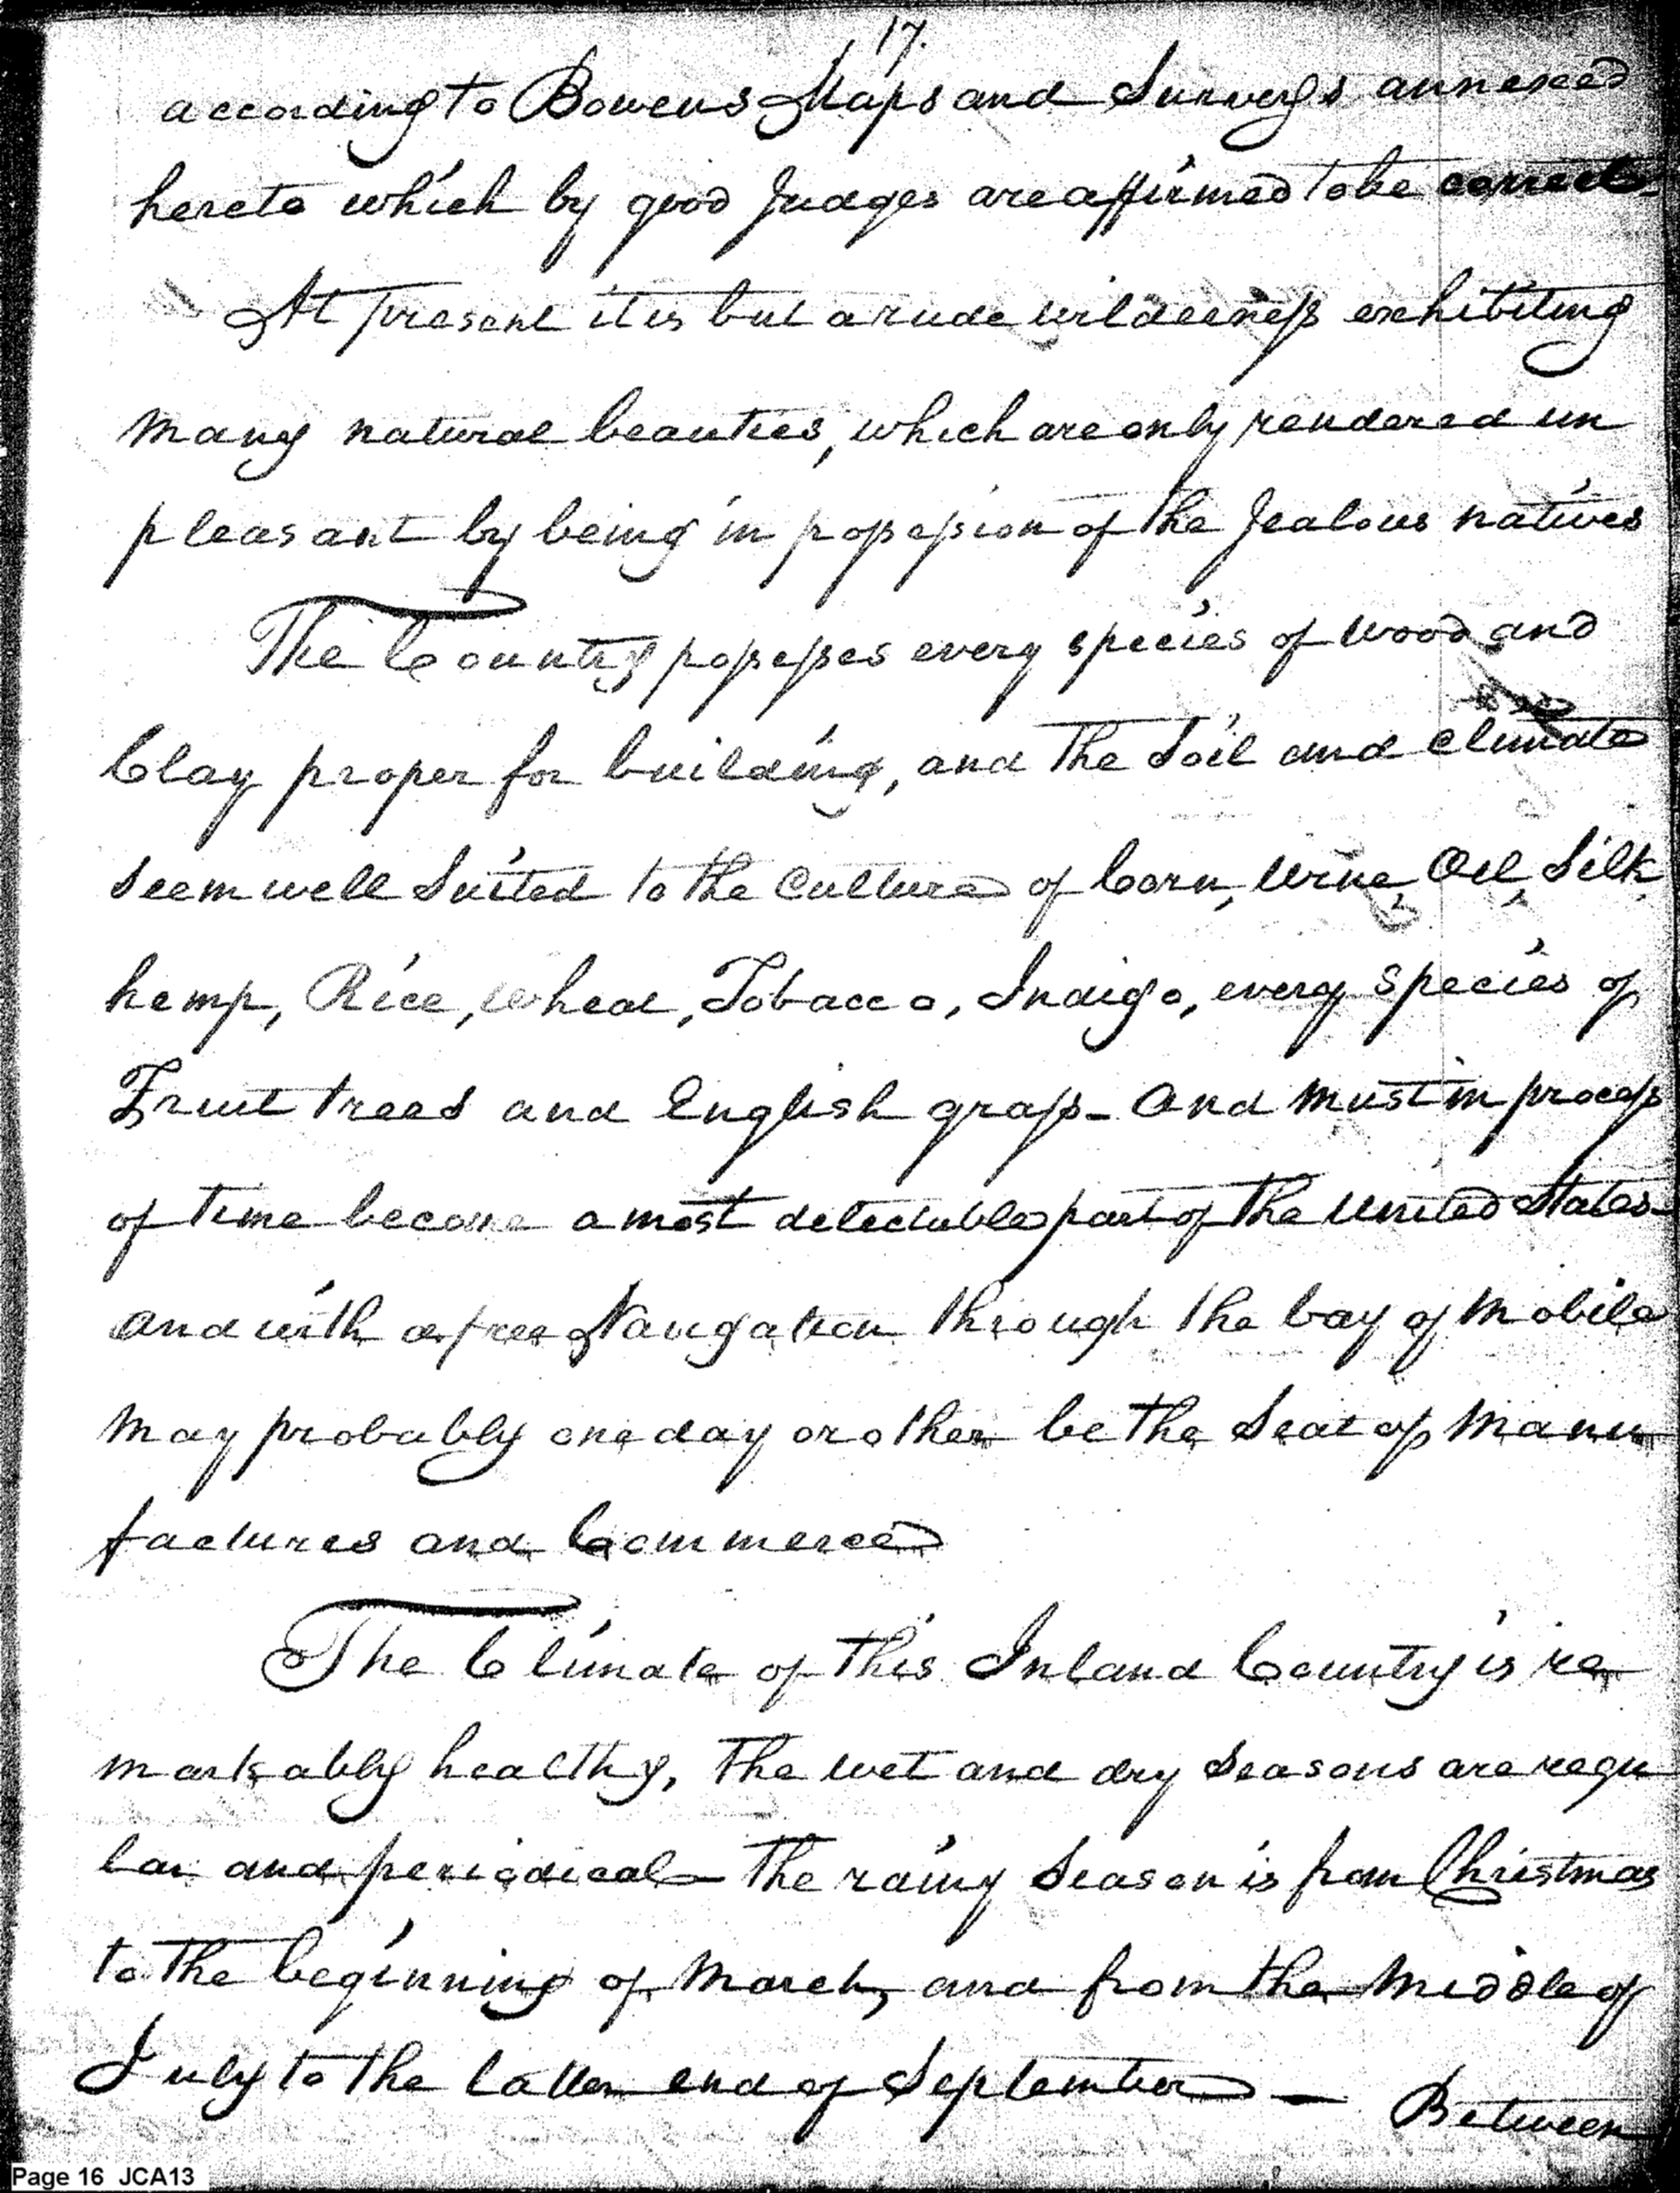 17.
according to Bowens Maps and Surveys annexed
hereto which by good Judges are affirmed to be correct.
At present it is but a rude wilderness exhibiting
many natural beauties, which are only rendered un
pleasant by being in possession of the Jealous natives
The Country possesses every species of wood and
Clay proper for building, and the Soil and climate
seem well Suited to the Culture of Corn, Wine, Oil, Silk,
hemp, Rice, wheat, Tobacco, Indigo, every species of
Fruit trees and English grass - and must in process
of time become a most delectable part of the United States -
and with a free Navigation through the bay of Mobile
may probably one day or other be the Seat of Manu
factures and Commerce
The Climate of this Inland Country is re
markably healthy, the wet and dry seasons are regu
lar and periodical - The rainy Season is from Christmas
to the beginning of March, and from the Middle of
July to the latter end of September -
Between
Page 16 JCA13